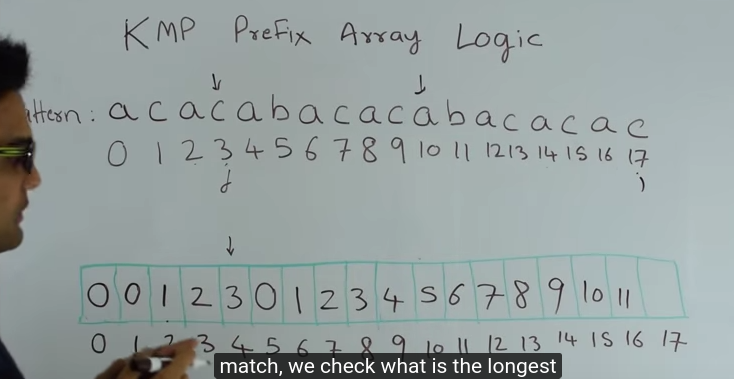 KMP Prefix Array Logic
ttern : a c a c a b a c a c a b a c a c a c
0 1 2 3 4 5 6 7 8 9 10 11 12 13 14 15 16 17
j i
0 0 1 2 3 0 1 2 3 4 5 6 7 8 9 10 11
0 1 2 3 4 5 6 7 8 9 10 11 12 13 14 15 16 17
match, we check what is the longest